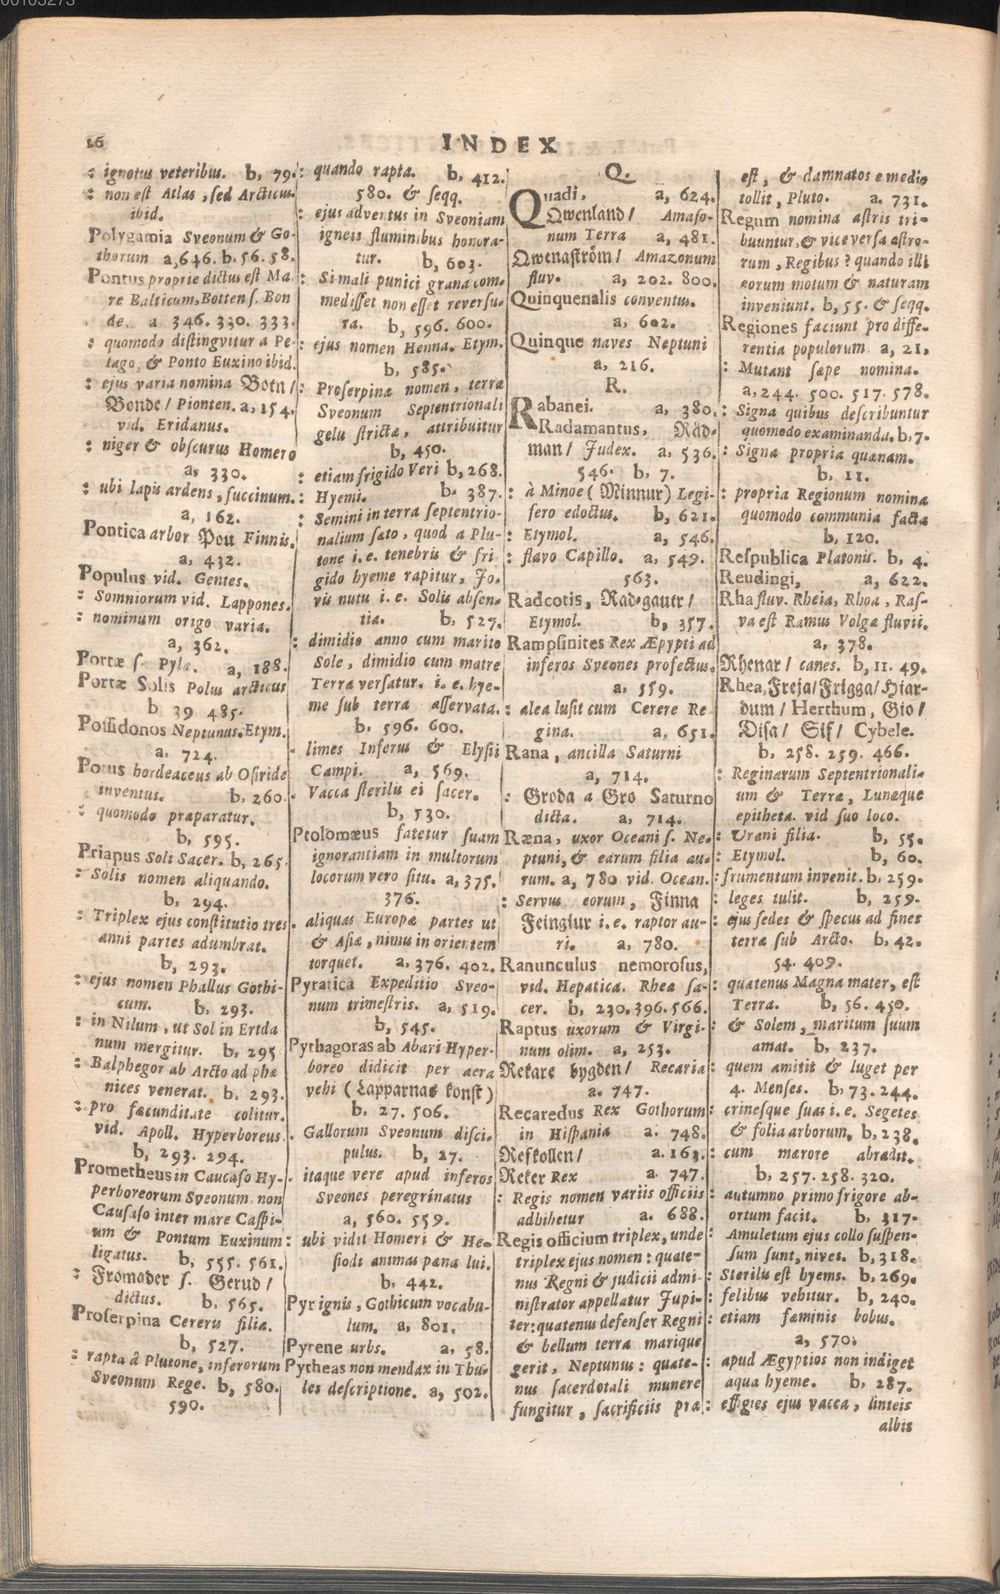 00103273
26
INDEX
: ignotus veteribus. b, 79.
: non est Atlas, sed Arcticus.
ibid.
Polygamia Sveonum & Go-
thorum a, 646. b. 56. 58.
Pontus proprie dictus est Ma
re Balticum, Botten s. Bon
de. a 346. 330. 333.
: quomodo distingvitur a Pe-
lago, & Ponto Euxino ibid.
: ejus varia nomina Botn /
Bonde / Pionten. a, 154.
vid. Eridanus.
: niger & obscurus Homero
a, 330.
: ubi lapis ardens, succinum.
a, 162.
Pontica arbor Pou Finnis.
a, 432.
Populus vid. Gentes.
: Somniorum vid. Lappones.
: nominum origo varia.
a, 362.
Portæ s. Pylæ. a, 188.
Portæ Solis Polus arcticus
b 39 485.
Possidonos Neptunus. Etym.
a, 724.
Potus hordeaceus ab Osiride
inventus. b, 260.
: quomodo præparatur.
b, 595.
Priapus Soli Sacer. b, 265.
: Solis nomen aliquando.
b, 294.
: Triplex ejus constitutio tres
anni partes adumbrat.
b, 293.
: ejus nomen Phallus Gothi-
cum. b, 293.
: in Nilum, ut Sol in Ertda
num mergitur. b, 295
: Balphegor ab Arcto ad phœ
nices venerat. b, 293.
: pro fæcunditate colitur.
vid. Apoll. Hyperboreus.
b, 293. 294.
Prometheus in Caucaso Hy-
perboreorum Sveonum, non
Causaso inter mare Caspi-
um & Pontum Euxinum
ligatus. b, 555. 561.
: Fromader s. Gerud /
dictus. b, 565.
Proserpina Cereris filia.
b, 527.
: rapta à Plutone, inferorum
Sveonum Rege. b, 580.
590.
: quando rapta. b, 412.
580. & seqq.
: ejus adventus in Sveoniam
igneis fluminibus honora-
tur. b, 603.
: Si mali punici grana com-
medisset non esset reversu-
ra. b, 596. 600.
: ejus nomen Henna. Etym.
b, 585.
: Proserpinæ nomen, terræ
Sveonum Septentrionali
gelu strictæ, attribuitur
b, 450.
: etiam frigido Veri b, 268.
: Hyemi. b. 387.
: Semini in terra septentrio-
nalium sato, quod a Plu-
tone i. e. tenebris & fri
gido hyeme rapitur, Jo-
vis nutu i. e. Solis absen-
tia. b, 527.
: dimidio anno cum marito
Sole, dimidio cum matre
Terra versatur. i. e. hye-
me sub terra asservata.
b. 596. 600.
: limes Inferus & Elysii
Campi. a, 569.
: Vacca sterilis ei sacer.
b, 530.
Ptolomæus fatetur suam
ignorantiam in multorum
locorum vero situ. a, 375.
376.
: aliquas Europæ partes ut
& Asiæ, nimis in orientem
torquet. a, 376. 402.
Pyratica Expeditio Sveo-
num trimestris. a, 519.
b, 545.
Pythagoras ab Abari Hyper-
boreo didicit per aera
vehi (Lapparnas konst)
b. 27. 506.
: Gallorum Sveonum disci-
pulus. b, 27.
: itaque vere apud inferos
Sveones peregrinatus
a, 560. 559.
: ubi vidit Homeri & He-
siodi animas pœna lui.
b, 442.
Pyr ignis, Gothicum vocabu-
lum. a, 801.
Pyrene urbs. a, 58.
Pytheas non mendax in Thu-
les descriptione. a, 502.
Q.
Quadi, a, 624.
Qwenland / Amaso-
num Terra a, 481.
Qwenaström / Amazonum
fluv. a, 202. 800.
Quinquenalis conventus.
a, 602.
Quinque naves Neptuni
a, 216.
R.
Rabanei. a, 380.
Radamantus, Råd-
man / Judex. a, 536.
546. b, 7.
: à Minoe (Minnur) Legi-
fero edoctus. b, 621.
: Etymol. a, 546.
: flavo Capillo. a, 549.
563.
Radcotis, Rad-gautr /
Etymol. b, 357.
Rampsinites Rex Æpypti ad
inferos Sveones profectus.
a, 559.
: alea lusit cum Cerere Re
gina. a, 651.
Rana, ancilla Saturni
a, 714.
: Groda a Gro Saturno
dicta. a, 714.
Ræna, uxor Oceani s. Ne-
ptuni, & earum filia au-
rum. a, 780 vid. Ocean.
: Servus eorum, Finna
Feingiur i. e. raptor au-
ri. a, 780.
Ranunculus nemorosus,
vid. Hepatica. Rhea sa-
cer. b, 230. 396. 566.
Raptus uxorum & Virgi-
num olim. a, 253.
Rekare bygden / Recaria
a. 747.
Recaredus Rex Gothorum
in Hispania a. 748.
Refkollen / a. 163.
Reker Rex a. 747.
: Regis nomen variis officiis
adhibetur a. 688.
Regis officium triplex, unde
triplex ejus nomen: quate-
nus Regni & judicii admi-
nistrator appellatur Jupi-
ter: quatenus defensor Regni
& bellum terra marique
gerit, Neptunus: quate-
nus sacerdotali munere
fungitur, sacrificiis præ
est, & damnatos e medio
tollit, Pluto. a. 731.
Regum nomina astris tri-
buuntur, & vice versa astro-
rum, Regibus? quando illi
eorum motum & naturam
inveniunt. b, 55. & seqq.
Regiones faciunt pro diffe-
rentia populorum. a, 21,
: Mutant sæpe nomina.
a, 244. 500. 517. 578.
: Signa quibus describuntur
quomodo examinanda. b, 7.
: Signa propria quænam.
b, 11.
: propria Regionum nomina
quomodo communia facta
b, 120.
Respublica Platonis. b, 4.
Reudingi, a, 622.
Rha fluv. Rheia, Rhoa, Ras-
va est Ramus Volgæ fluvii.
a, 378.
Rhenar / canes. b, 11. 49.
Rhea, Freja / Frigga / Hiar-
dum / Herthum, Gio /
Disa / Sif / Cybele.
b, 258. 259. 466.
: Reginarum Septentrionali-
um & Terræ, Lunæque
epitheta. vid suo loco.
: Urani filia. b, 55.
: Etymol. b, 60.
: frumentum invenit. b, 259.
: leges tulit. b, 259.
: ejus sedes & specus ad fines
terræ sub Arcto. b, 42.
54. 409.
: quatenus Magna mater, est
Terra. b, 56. 450.
: & Solem, maritum suum
amat. b, 237.
: quem amitit & luget per
4. Menses. b, 73. 244.
: crinesque suas i. e. Segetes
& folia arborum, b, 238.
: cum mærore abradit.
b, 257. 258. 320.
: autumno primo frigore ab-
ortum facit. b, 317.
: Amuletum ejus collo suspen-
sum sunt, nives. b, 318.
: Sterilis est hyems. b, 269.
: felibus vehitur. b, 240.
: etiam fæminis bobus.
a, 570.
: apud Ægyptios non indiget
aqua hyeme. b, 287.
: effigies ejus vacca, linteis
albis